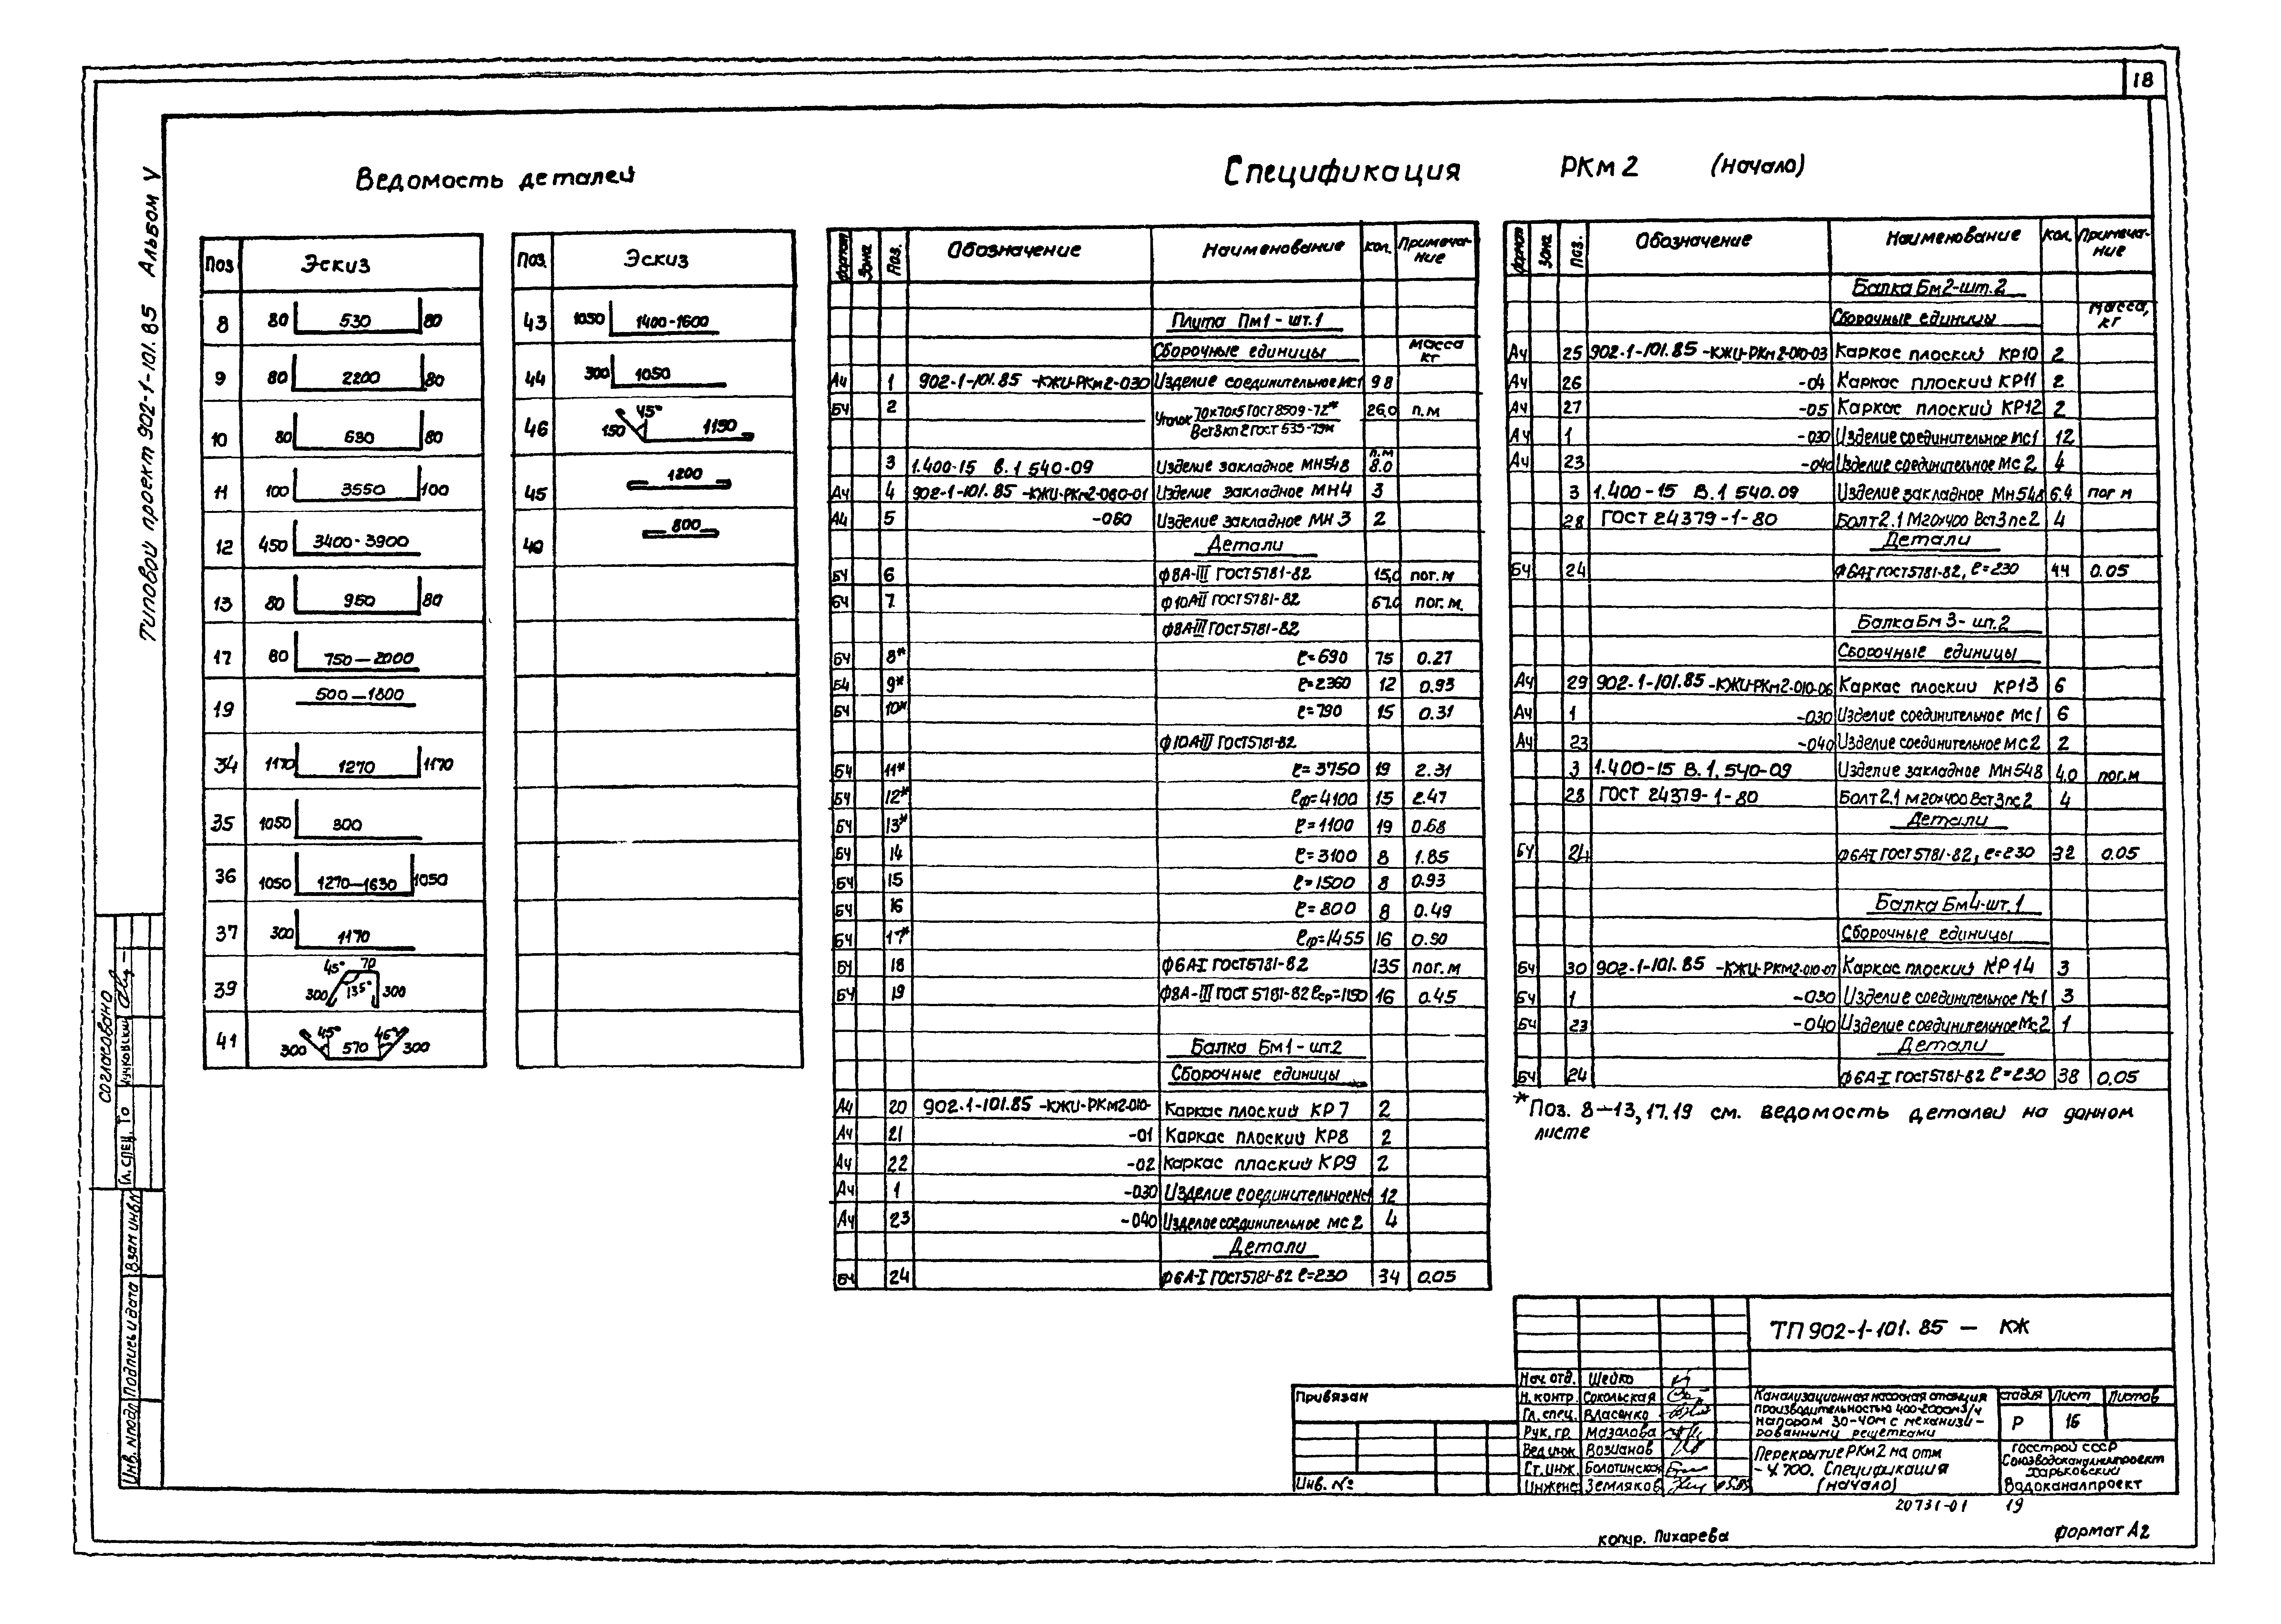 18
Типовой проект 902-1-101.85 Альбом V
Ведомость деталей
Спецификация РКм2 (начало)
Поз Эскиз
8 80 530 80
9 80 2200 80
10 80 630 80
11 100 3550 100
12 450 3400-3900
13 80 950 80
17 80 750-2000
19 500-1800
34 1170 1270 1170
35 1050 300
36 1050 1270-1630 1050
37 300 1170
39 45° 70 300 135° 300
41 300 45° 570 45° 300
Поз. Эскиз
43 1050 1400-1600
44 300 1050
46 45° 150 1150
45 1200
40 800
Формат Зона Поз. Обозначение Наименование Кол. Примечание
Плита Пм1 - шт.1
Сборочные единицы масса кг
А4 1 902-1-101.85 -КЖИ-РКм2-030 Изделие соединительное МС1 98
БЧ 2 Уголок 70х70х5 ГОСТ 8509-72* 26,0 п.м
3 1.400-15 В.1 540-09 Изделие закладное МН548 8.0 п.м
А4 4 902-1-101.85 -КЖИ-РКм2-060-01 Изделие закладное МН4 3
А4 5 -060 Изделие закладное МН3 2
Детали
БЧ 6 ф8А-III ГОСТ5781-82 15,0 пог.м
БЧ 7 ф10АII ГОСТ5781-82 67.0 пог.м.
ф8АIII ГОСТ5781-82
БЧ 8* ℓ=690 75 0.27
БЧ 9* ℓ=2360 12 0.93
БЧ 10* ℓ=790 15 0.31
ф10АIII ГОСТ5781-82
БЧ 11* ℓ=3750 19 2.31
БЧ 12* ℓср=4100 15 2.47
БЧ 13* ℓ=1100 19 0.68
БЧ 14 ℓ=3100 8 1.85
БЧ 15 ℓ=1500 8 0.93
БЧ 16 ℓ=800 8 0.49
БЧ 17* ℓср=1455 16 0.90
БЧ 18 ф6А-I ГОСТ5781-82 135 пог.м
БЧ 19 ф8А-III ГОСТ 5781-82 ℓср=1150 16 0.45
Балка Бм1 - шт.2
Сборочные единицы
А4 20 902-1-101.85 -КЖИ-РКм2-010- Каркас плоский КР7 2
А4 21 -01 Каркас плоский КР8 2
А4 22 -02 Каркас плоский КР9 2
А4 1 -030 Изделие соединительное МС1 12
А4 23 -040 Изделое соединительное МС2 4
Детали
БЧ 24 ф6А-I ГОСТ5781-82 ℓ=230 34 0.05
Формат Зона Поз. Обозначение Наименование Кол. Примечание
Балка Бм2-шт.2
Сборочные единицы масса, кг
А4 25 902-1-101.85 -КЖИ-РКм2-010-03 Каркас плоский КР10 2
А4 26 -04 Каркас плоский КР11 2
А4 27 -05 Каркас плоский КР12 2
А4 1 -030 Изделие соединительное МС1 12
А4 23 -040 Изделие соединительное МС2 4
3 1.400-15 В.1 540.09 Изделие закладное Мн548 6.4 пог м
28 ГОСТ 24379-1-80 Болт 2.1 М20х400 Вст3пс2 4
Детали
БЧ 24 ф6АI ГОСТ5781-82, ℓ=230 44 0.05
Балка Бм3- шт.2
Сборочные единицы
А4 29 902-1-101.85 -КЖИ-РКм2-010-06 Каркас плоский КР13 6
А4 1 -030 Изделие соединительное МС1 6
А4 23 -040 Изделие соединительное МС2 2
3 1.400-15 В.1. 540-09 Изделие закладное Мн548 4.0 пог.м
28 ГОСТ 24379-1-80 Болт 2.1 М20х400 Вст3пс2 4
Детали
БЧ 24 ф6АI ГОСТ5781-82, ℓ=230 32 0.05
Балка Бм4-шт.1
Сборочные единицы
БЧ 30 902-1-101.85 -КЖИ-РКм2-010-07 Каркас плоский КР14 3
БЧ 1 -030 Изделие соединительное Мс1 3
БЧ 23 -040 Изделие соединительное Мс2 1
Детали
БЧ 24 ф6А-I ГОСТ5781-82 ℓ=230 38 0.05
*Поз. 8-13,17.19 см. ведомость деталей на данном
листе
Согласовано
Гл. спец. ТО
Взам инв.№
Подпись и дата
Инв. №подл
Привязан
Инв. №
ТП 902-1-101.85 - КЖ
Нач. отд. Шейко
Н. контр. Сокольская
Гл. спец. Власенко
Рук. гр. Мазалова
Вед инж. Возианов
Ст. инж. Болотинская
Инжене Земляков
Канализационная насосная станция
производительностью 400-2000м3/ч
напором 30-40м с механизи-
рованными решетками
Стадия Лист Листов
Р 16
Перекрытие РКм2 на отм
-4.700. Спецификация
(начало)
Госстрой СССР
Союзводоканалпроект
Харьковский
Водоканалпроект
20731-01 19
копир. Пихарева
формат А2